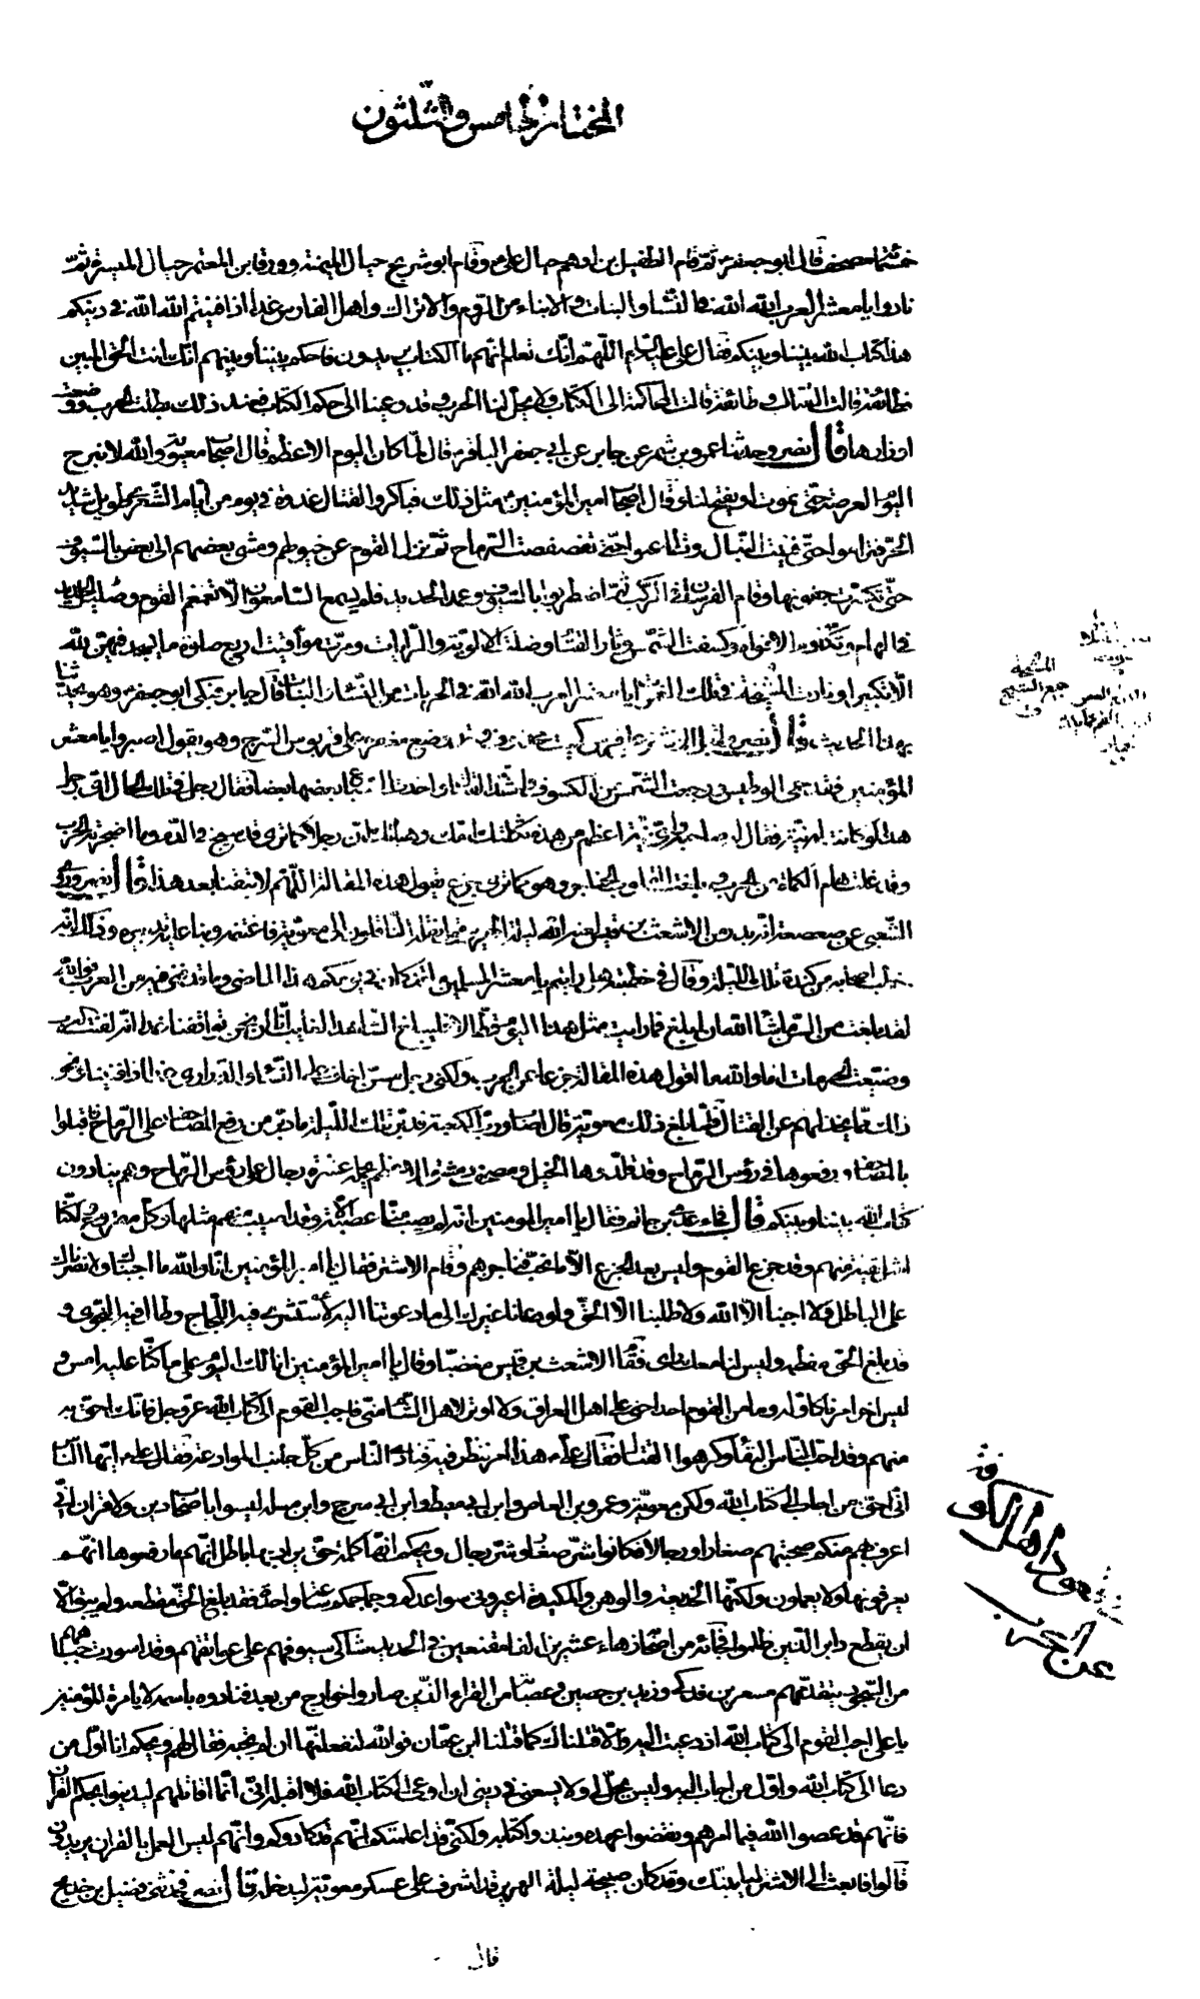 المختار الخامس والثلثون
خمسمائة مصحف قال ابو جعفر ثم قام الطفيل بن ادهم حيال علي وقام ابو شريح حيال الميمنة وورقا بن المعتمر حيال الميسرة ثم
نادوا يا معشر العرب الله الله في النساء والبنات والابناء من الروم والاتراك واهل الفارس غدا اذا فنيتم الله الله في دينكم
هذا كتاب الله بيننا وبينكم فقال علي عليه السلام اللهم انك تعلم انهم ما الكتاب يريدون فاحكم بيننا وبينهم انك انت الحق المبين
فطائفة قالت القتال وطائفة قالت المحاكمة الى الكتاب ولا يحل لنا الحرب وقد دعينا الى حكم الكتاب فعند ذلك بطلت الحرب ووضعت
اوزارها قال نصر وحدثنا عمرو بن شمر عن جابر عن ابي جعفر الباقر قال لما كان اليوم الاعظم قال اصحاب معوية والله لا نبرح
اليوم العرصة حتى نموت او يفتح لنا وقال اصحاب امير المؤمنين مثل ذلك فباكروا القتال غدوة في يوم من ايام الشعرى طويل شديد
الحر فتراموا حتى فنيت النبال وتطاعنوا حتى تقصفت الرماح ثم نزل القوم عن خيولهم ومشى بعضهم الى بعض بالسيوف
حتى تكسرت جفونها وقام الفرسان في الركب ثم اضطربوا بالسيوف وعمد الحديد فلم يسمع السامعون الا تغمغم القوم وصليل الحديد
في الهام وتكادم الافواه وكسفت الشمس وثار القتام وضلت الالوية والرايات ومرت مواقيت اربع صلوة ما يسجد فيهن لله
الا تكبيرا ونادت المشيخة في تلك الغمرات يا معشر العرب الله الله في الحرمات من النساء والبنات قال جابر فبكى ابو جعفر وهو يحدثنا
بهذا الحديث قال نصر واقبل الاشتر على فرس كميت محذوف وقد وضع مغفره على قربوس السرج وهو يقول اصبروا يا معشر
المؤمنين فقد حمي الوطيس ورجعت الشمس من الكسوف واشتد القتال واخذت السباع بعضها بعضا فقال رجل في تلك الحال اي رجل
هذا لو كانت له نية فقال له صاحبه واي نية اعظم من هذه ثكلتك امك وهبلتك ان رجلا كما ترى قد سبح في الدم وما اضجرته الحرب
وقد غلت هام الكماة من الحر وبلغت القلوب الحناجر وهو كما ترى جزع يقول هذه المقالة اللهم لا تبقنا بعد هذا قال نصر وروى
الشعبي عن صعصعة انه بدر من الاشعث بن قيس لعنه الله ليلة الهرير قول نقله الناقلون الى معوية فاغتنمه وبنا عليه تدبيره وذلك انه
خطب اصحابه من كندة تلك الليلة وقال في خطبته قد رايتم يا معشر المسلمين ما قد كان في يومكم هذا الماضي وما قد فني فيه من العرب فوالله
لقد بلغت من السن ما شاء الله ان ابلغ فما رايت مثل هذا اليوم قط الا فليبلغ الشاهد الغايب انا ان نحن تواقفنا غدا انه لفنيت العرب
وضيعت الحرمات اما والله ما اقول هذه المقالة جزعا من الحرب ولكني رجل مسن اخاف على النساء والذراري غدا اذا فنينا ونحو
ذلك مما يخذلهم عن القتال فلما بلغ ذلك معوية قال اصاب ورب الكعبة فدبر تلك الليلة ما دبر من رفع المصاحف على الرماح فاقبلوا
بالمصاحف ورفعوها في رؤس الرماح وقد قلدوها الخيل ومصحف دمشق الاعظم يحمله عشرة رجال على رؤس الرماح وهم ينادون
كتاب الله بيننا وبينكم قال فجاء عدي بن حاتم فقال يا امير المؤمنين انه لم يصب منا عصبة الا وقد اصيبت منهم مثلها وكل مقروح ولكنا
امثل بقية منهم وقد جزع القوم وليس بعد الجزع الا ما نحب فناجزهم وقام الاشتر فقال يا امير المؤمنين انا والله ما اجبناك ولا نصرناك
على الباطل ولا اجبنا الا الله ولا طلبنا الا الحق ولو دعانا غيرك الى ما دعوتنا اليه لاستشرى فيه اللجاج وطال فيه النجوى و
قد بلغ الحق مقطعه وليس لنا معك راي فقام الاشعث بن قيس مغضبا وقال يا امير المؤمنين انا لك اليوم على ما كنا عليه امس و
ليس اخر امرنا كاوله وما من القوم احد احنى على اهل العراق ولا اوتر لاهل الشام مني فاجب القوم الى كتاب الله عز وجل فانك احق به
منهم وقد احب الناس البقاء وكرهوا القتال فقال علي هذا امر ننظر فيه فنادى الناس من كل جانب الموادعة فقال علي ايها الناس
اني احق من اجاب الى كتاب الله ولكن معوية وعمرو بن العاص وابن ابي معيط وابن ابي سرح وابن مسلمة ليسوا باصحاب دين ولا قران اني
اعرف بهم منكم صحبتهم صغارا ورجالا فكانوا شر صغار وشر رجال ويحكم انها كلمة حق يراد بها باطل انهم ما رفعوها انهم
يعرفونها ولا يعملون ولكنها الخديعة والوهن والمكيدة اعيروني سواعدكم وجماجمكم ساعة واحدة فقد بلغ الحق مقطعه ولم يبق الا
ان يقطع دابر الذين ظلموا فجاءه من اصحابه زهاء عشرين الفا مقنعين في الحديد شاكي سيوفهم على عواتقهم وقد اسودت جباههم
من السجود يتقدمهم مسعر بن فدكي وزيد بن حصين وعصابة من القراء الذين صاروا خوارج من بعد فنادوه باسمه لا بامرة المؤمنين
يا علي اجب القوم الى كتاب الله اذ دعيت اليه والا قتلناك كما قتلنا ابن عفان فوالله لنفعلنها ان لم تجبهم فقال لهم ويحكم انا اول من
دعا الى كتاب الله واول من اجاب اليه وليس يحل لي ولا يسعني في ديني ان ادعى الى كتاب الله فلا اقبله اني انما اقاتلهم ليدينوا بحكم القران
فانهم قد عصوا الله فيما امرهم ونقضوا عهده ونبذوا كتابه ولكني قد اعلمتكم انهم قد كادوكم وانهم ليس العمل بالقران يريدون
قالوا فابعث الى الاشتر لياتينك وقد كان صبيحة ليلة الهرير قد اشرف على عسكر معوية ليدخله قال نصر فحدثني فضيل بن خديج
المشيخة
جمع الشيخ
قعود اهل الكوفة
عن الحرب
قال